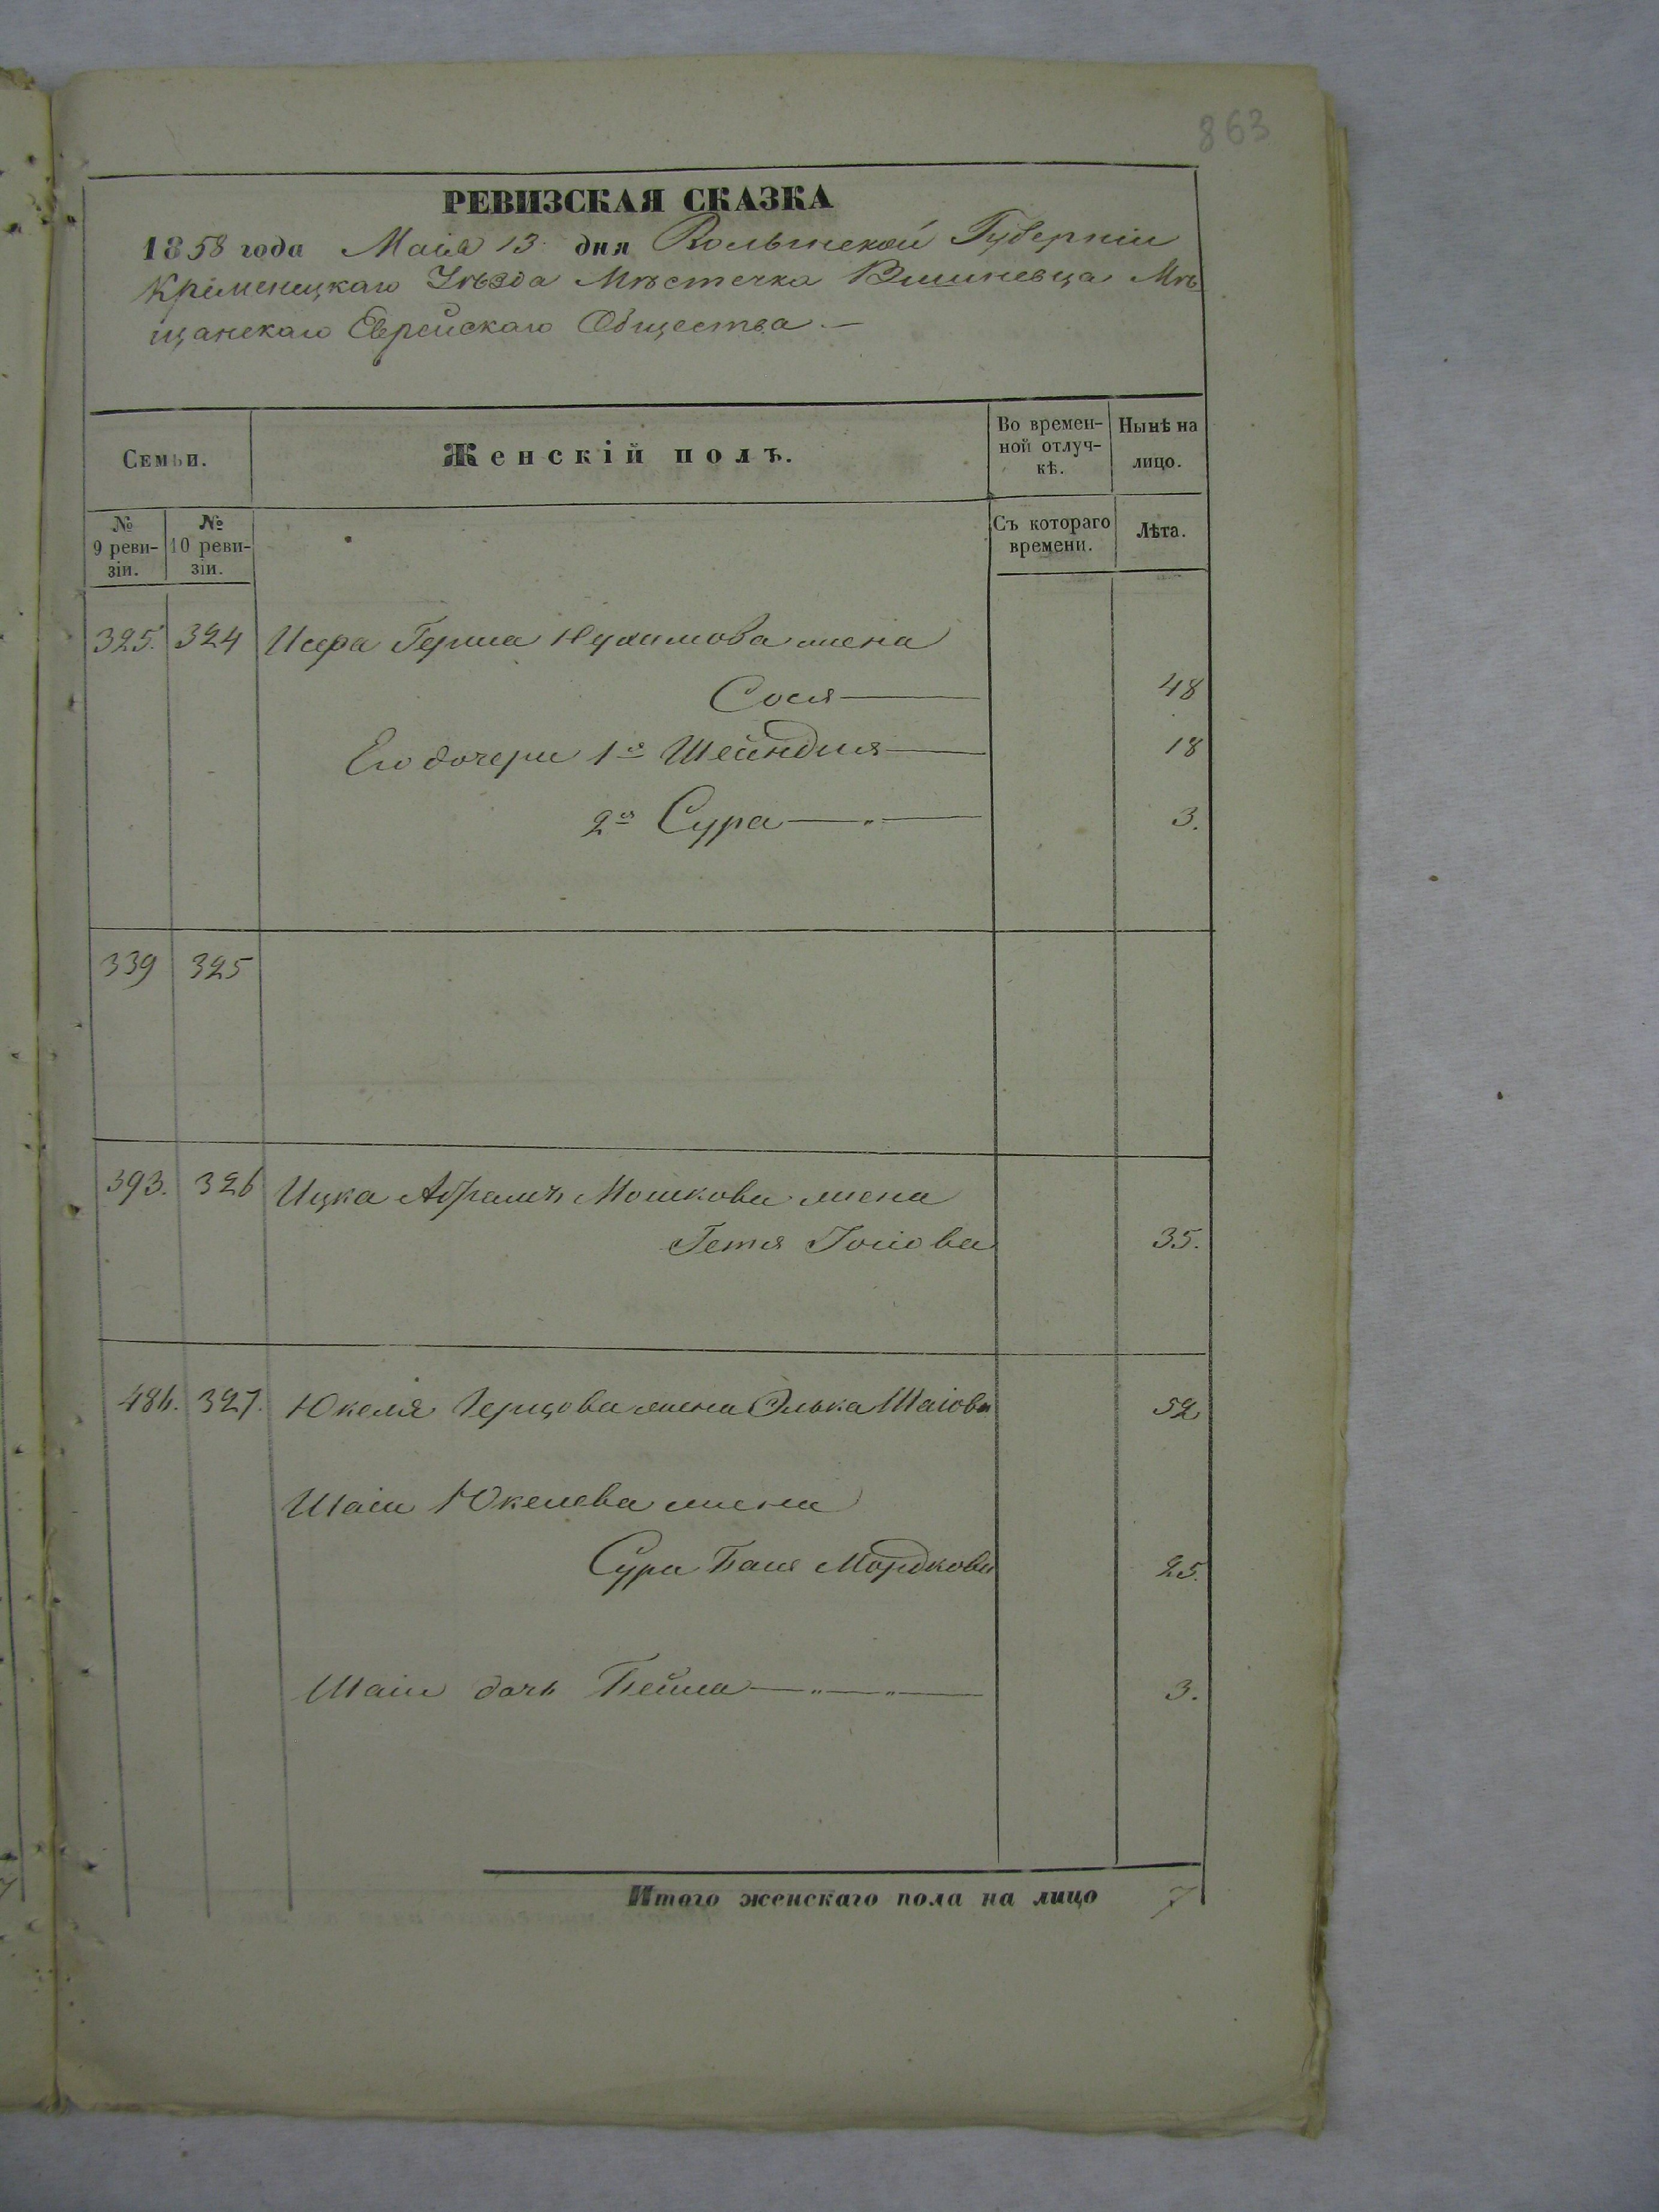 863
РЕВИЗСКАЯ СКАЗКА
1858 года Маія 13 дня Волынской Губерніи
Кременецкаго Уѣзда Мѣстечка Вишневца Мѣ
щанскаго Еврейскаго Общества.—
Семьи.
Женскій полъ.
Во времен-
ной отлуч-
кѣ.
Нынѣ на
лицо.
№
9 реви-
зіи.
№
10 реви-
зіи.
Съ котораго
времени.
Лѣта.
325. 324 Герша Нухимова жена
Сося 48
Его дочери 1я Шейндля 18
2я Сура 3.
339 325
393. 326 Ицка Абрамъ Мошкова жена
Гетя 35.
484. 327. Юкеля Герцова жена Элька Шаіова 52
Шаіи Юкелева жена
Сура Бася Мордкова 25.
Шаіи дочь Бейла 3.
Итого женскаго пола на лицо 7